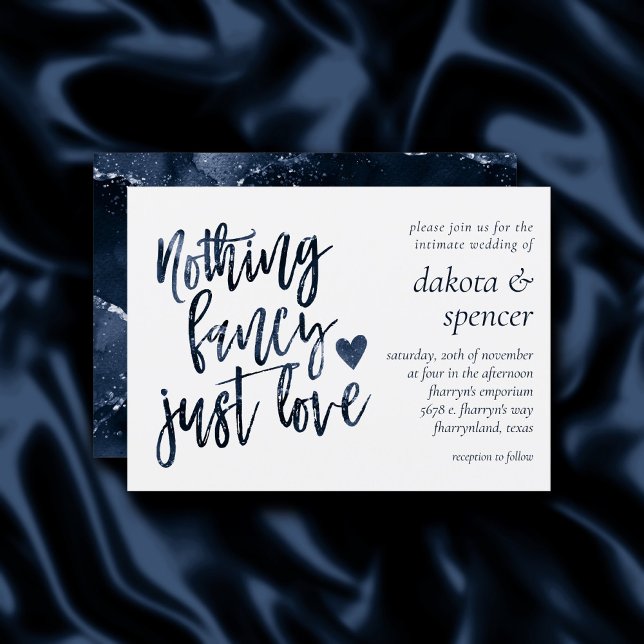 Nothing
fancy
just love
please join us for the
intimate wedding of
dakota &
spencer
saturday, 20th of november
at four in the afternoon
fharryn's emporium
5678 e. fharryn's way
fharrynland, texas
reception to follow